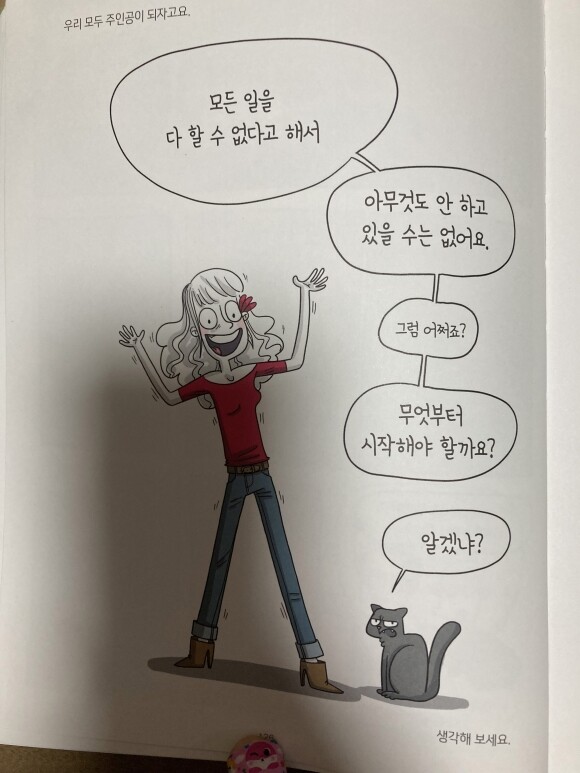 우리 모두 주인공이 되자고요.
모든 일을
다 할 수 없다고 해서
아무것도 안 하고
있을 수는 없어요.
그럼 어쩌죠?
무엇부터
시작해야 할까요?
알겠냐?
생각해 보세요.